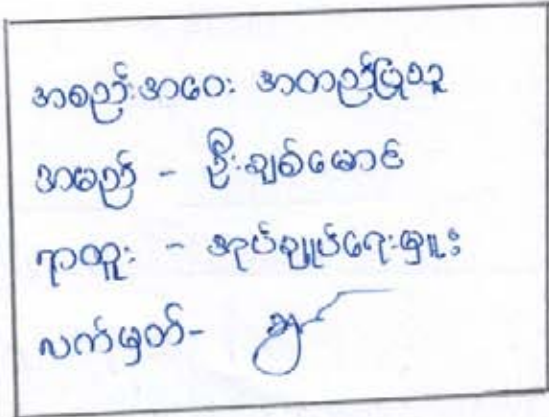 အစည်းအဝေး အတည်ပြုသူ
အမည် - ဦးချစ်မောင်
ရာထူး - အုပ်ချုပ်ရေးမှူး
လက်မှတ်-